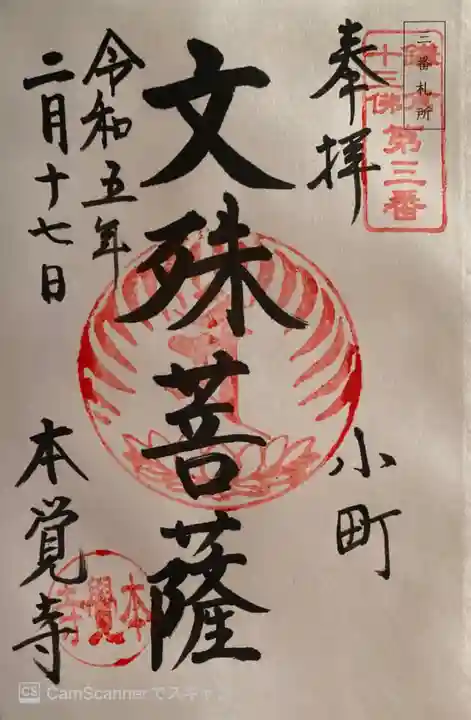 三番札所
鎌倉
十三佛
第三番
奉拝
小町
文殊菩薩
令和五年
二月十七日
本覚寺
本覺寺
CS CamScannerでスキャン